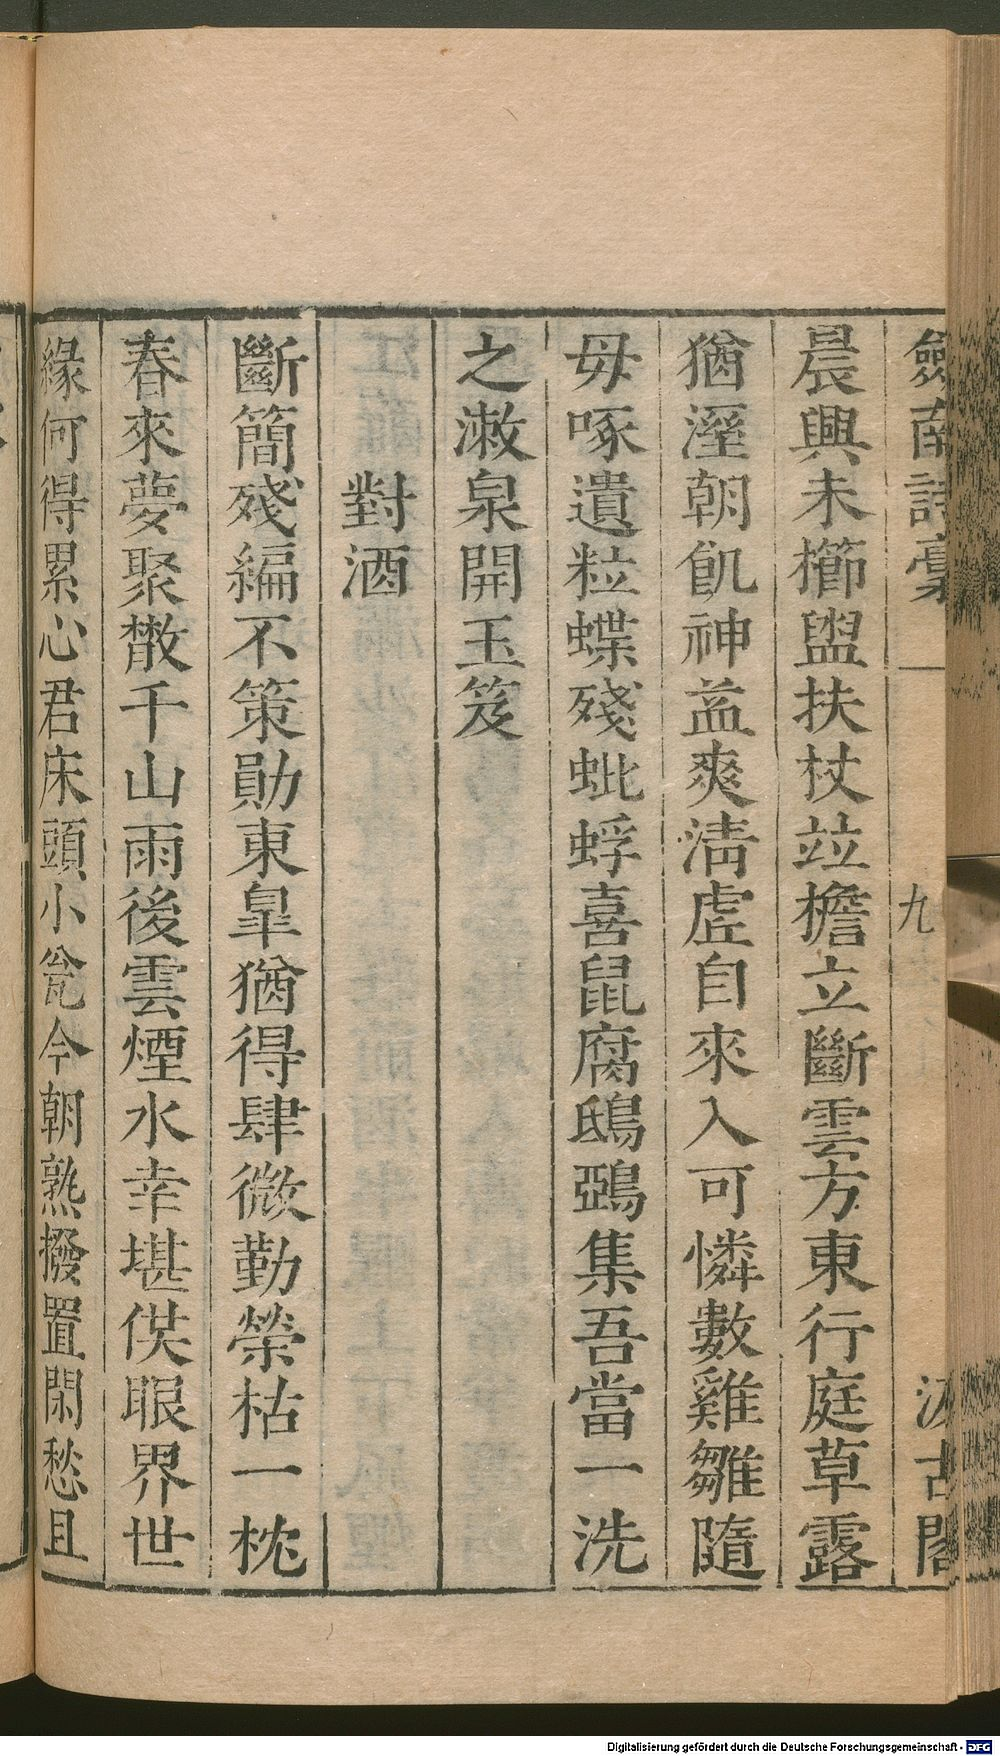 劒南詩稾
九
汲古閣
晨興未櫛盥扶杖竝檐立斷雲方東行庭草露
猶溼朝飢神益爽淸虛自來入可憐數雞雛隨
毋啄遺粒蝶殘蚍蜉喜鼠腐鴟鵶集吾當一洗
之漱泉開玉笈
對酒
斷簡殘編不策勛東臯猶得肆微勤榮枯一枕
春來夢聚散千山雨後雲煙水幸堪供眼界世
緣何得累心君床頭小瓮今朝熟撥置閑愁且
Digitalisierung gefördert durch die Deutsche Forschungsgemeinschaft - DFG